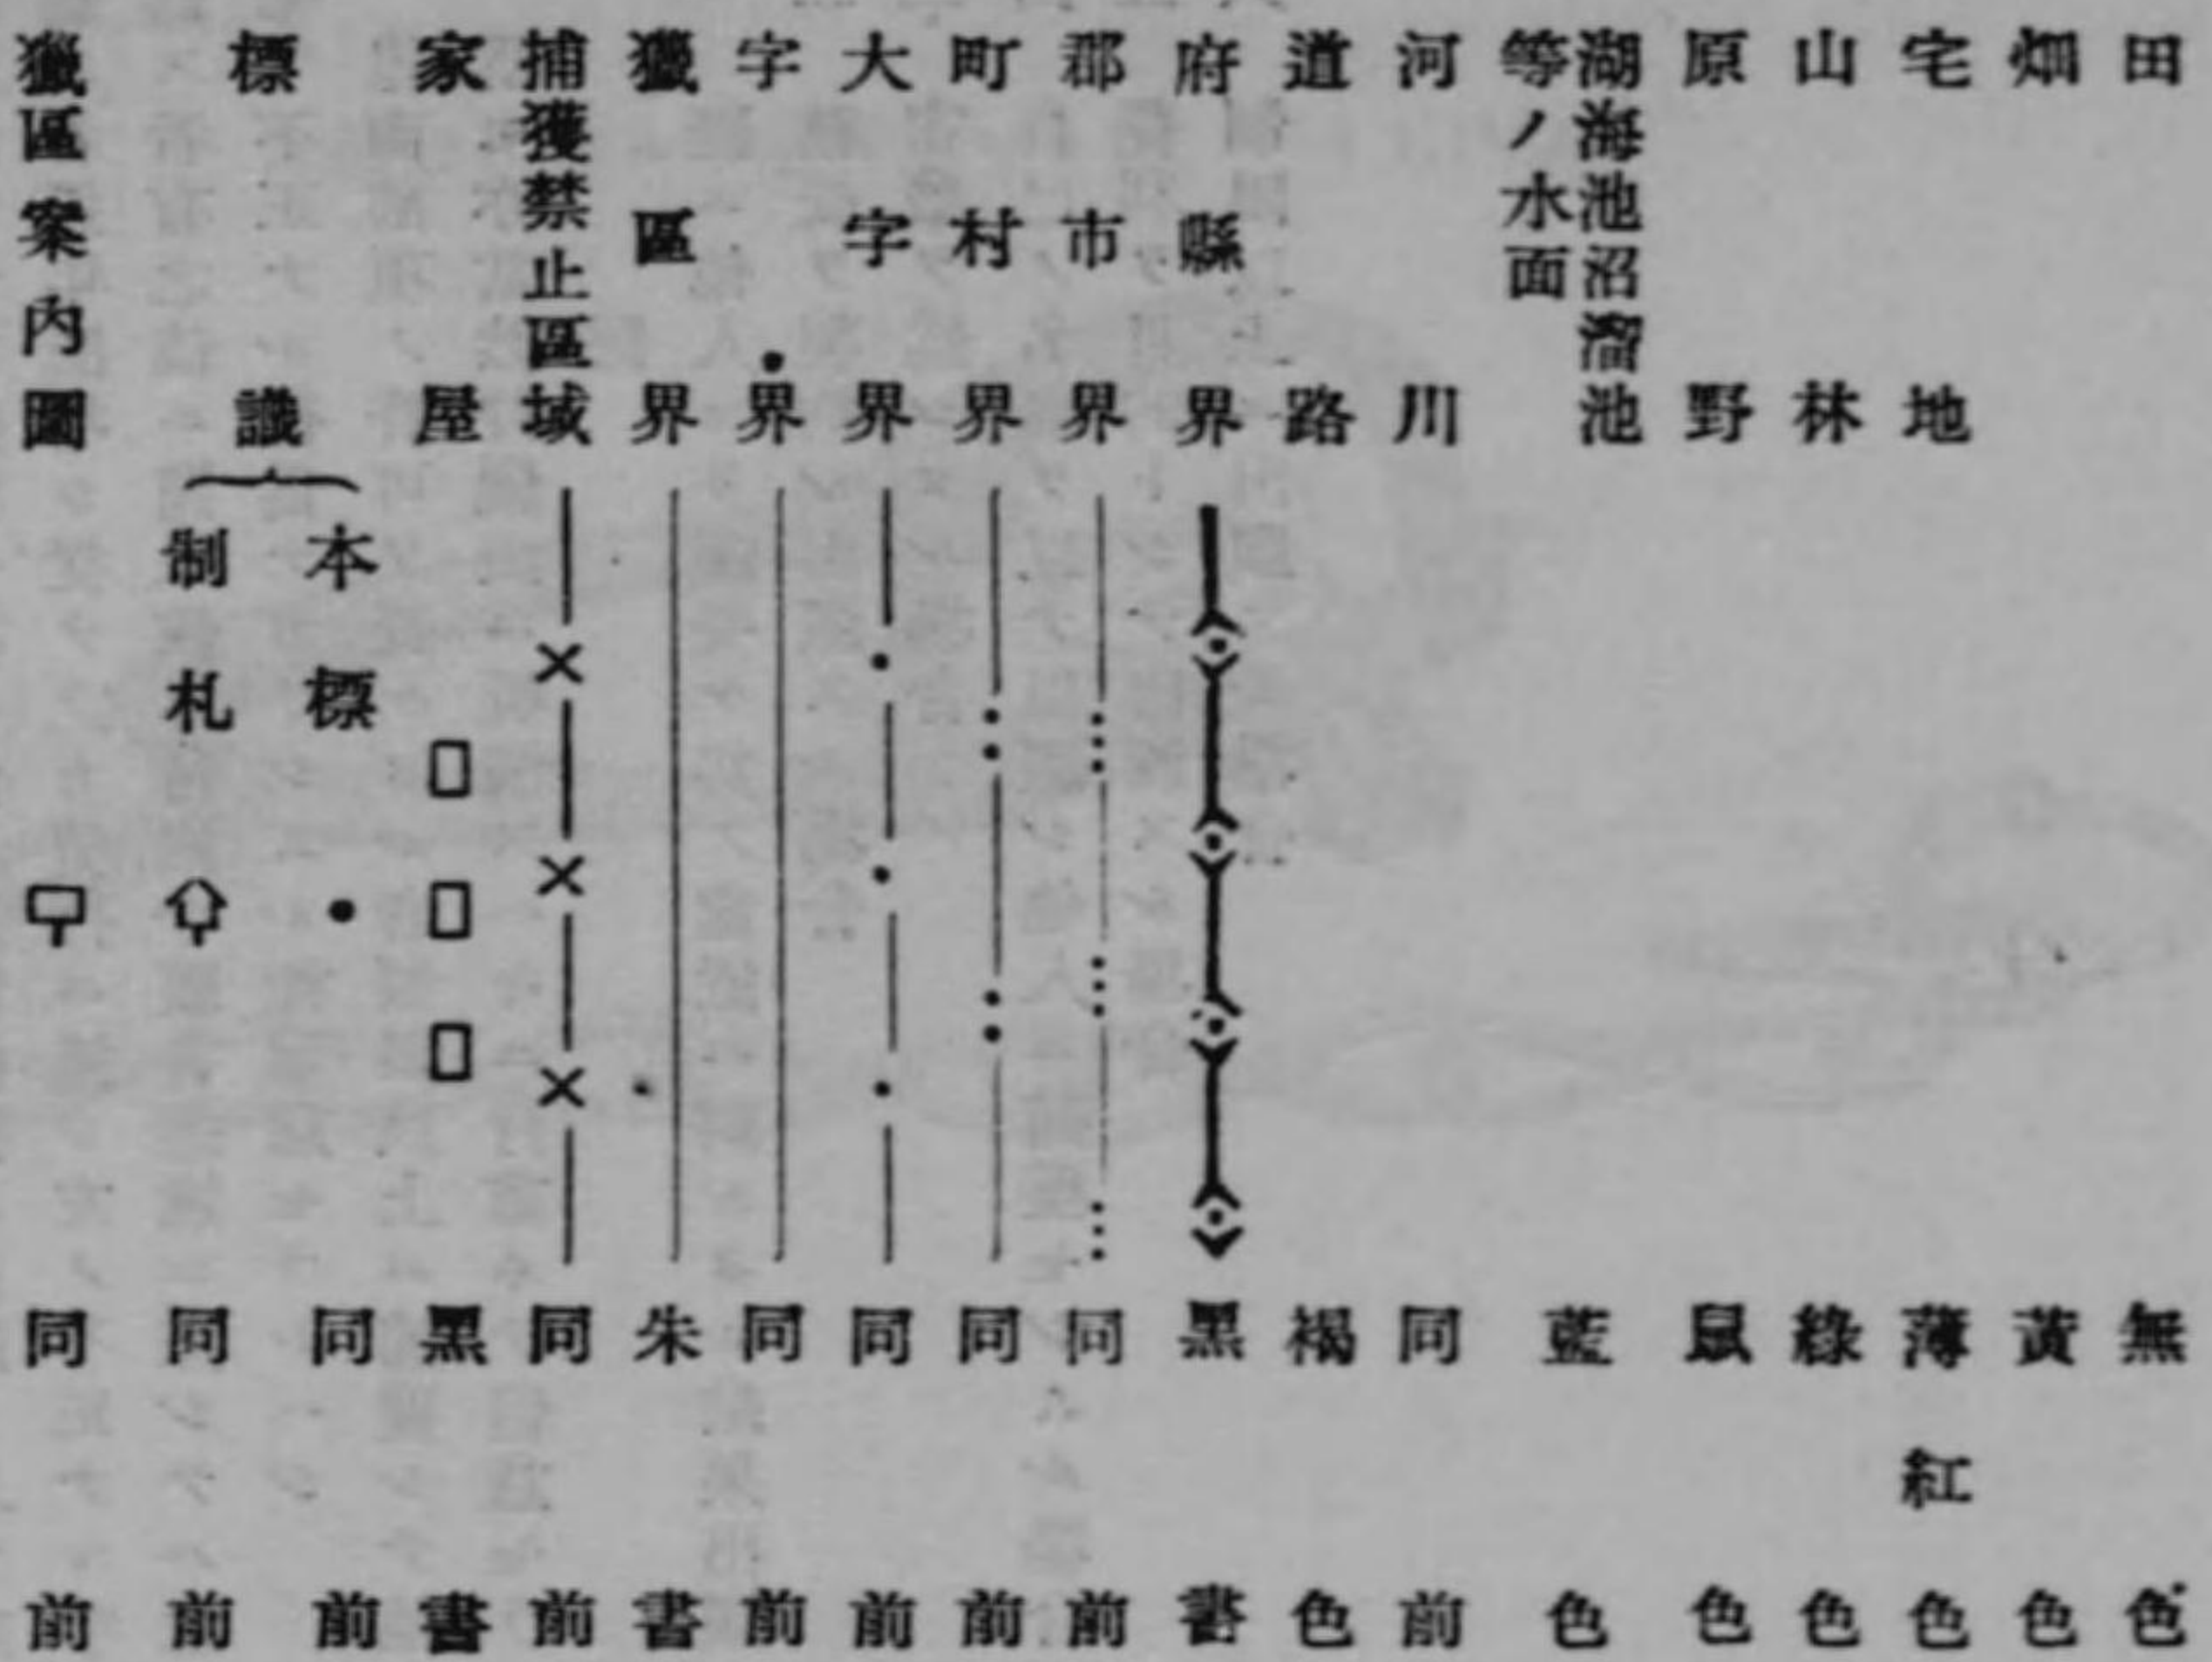 田 無色
畑 黃色
宅地 薄紅色
山林 綠色
原野 鼠色
湖海池沼溜池
等ノ水面 藍色
河川 同前
道路 褐色
府縣界 黑書
郡市界 同前
町村界 同前
大字界 同前
字界 同前
獵區界 朱書
捕獲禁止區域 同前
家屋 黑書
標識
本標 同前
制札 同前
獵區案內圖 同前